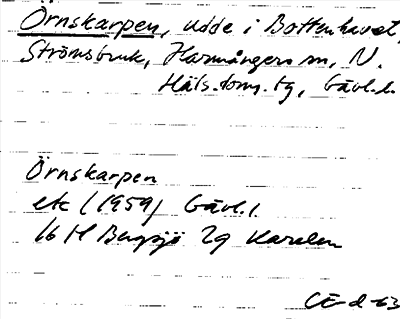 Örnskarpen, udde i Bottenhavet,
Strömsbruk, Harmångers sn, N.
Häls. doms. tg, Gävl. l.
Örnskarpen
ek (1959) Gävl. l.
16 H Bergsjö 2g
CE-d-63